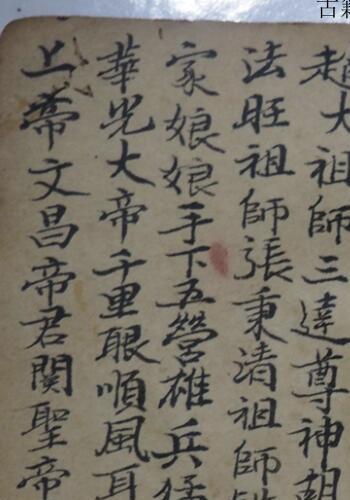 趙大祖師三達尊神朝
法旺祖師張秉清祖師
家娘娘手下五營雄兵猛
華光大帝千里眼順風耳
上帝文昌帝君関聖帝
古籍